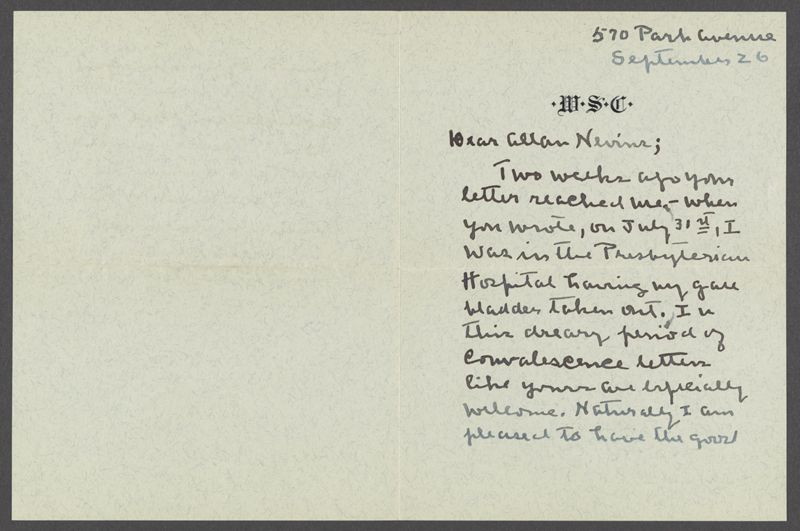 570 Park Avenue
September 26
·W·S·C·
Dear Allan Nevins;
Two weeks ago your
letter reached me,- when
you wrote, on July 31st, I
was in the Presbyterian
Hospital having my gall
bladder taken out. In
this dreary period of
convalescence letters
like yours are especially
welcome. Naturally I am
pleased to have the good